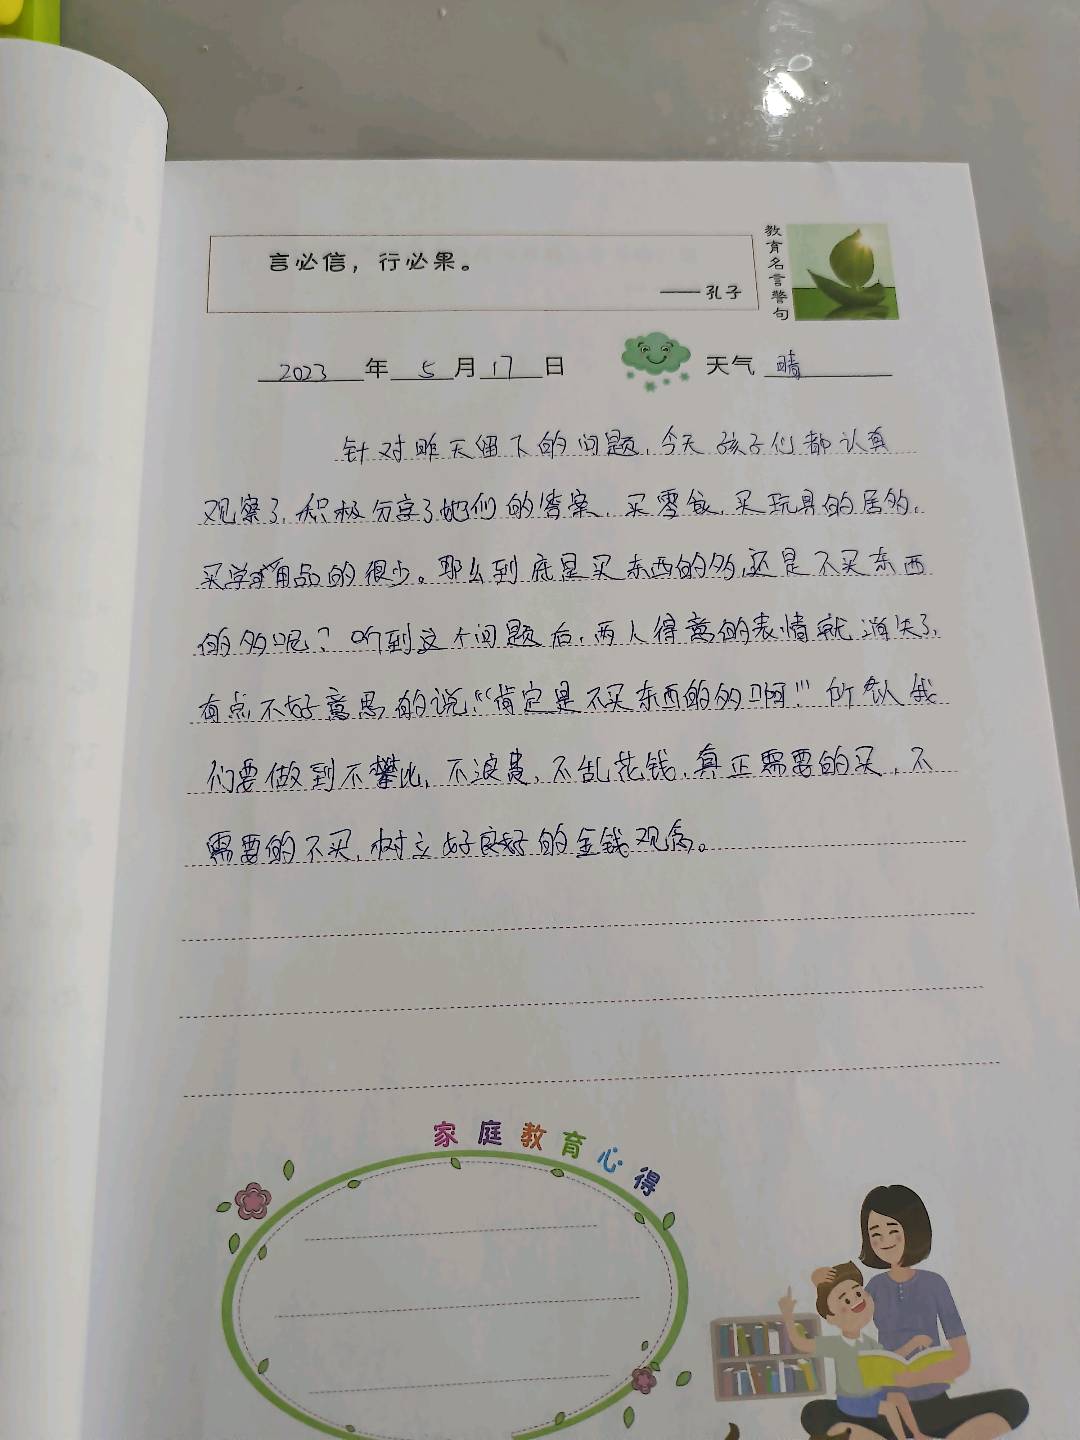 言必信，行必果。
——孔子
教育名言警句
2023年5月17日 天气 晴
针对昨天留下的问题，今天孩子们都认真
观察了，积极分享了她们的答案，买零食，买玩具的居多，
买学用品的很少。那么到底是买东西的多，还是不买东西
的多呢？听到这个问题后，两人得意的表情就消失了，
有点不好意思的说：“肯定是不买东西的多啊！”所以我
们要做到不攀比，不浪费，不乱花钱，真正需要的买，不
需要的不买，树立好良好的金钱观念。
家庭教育心得